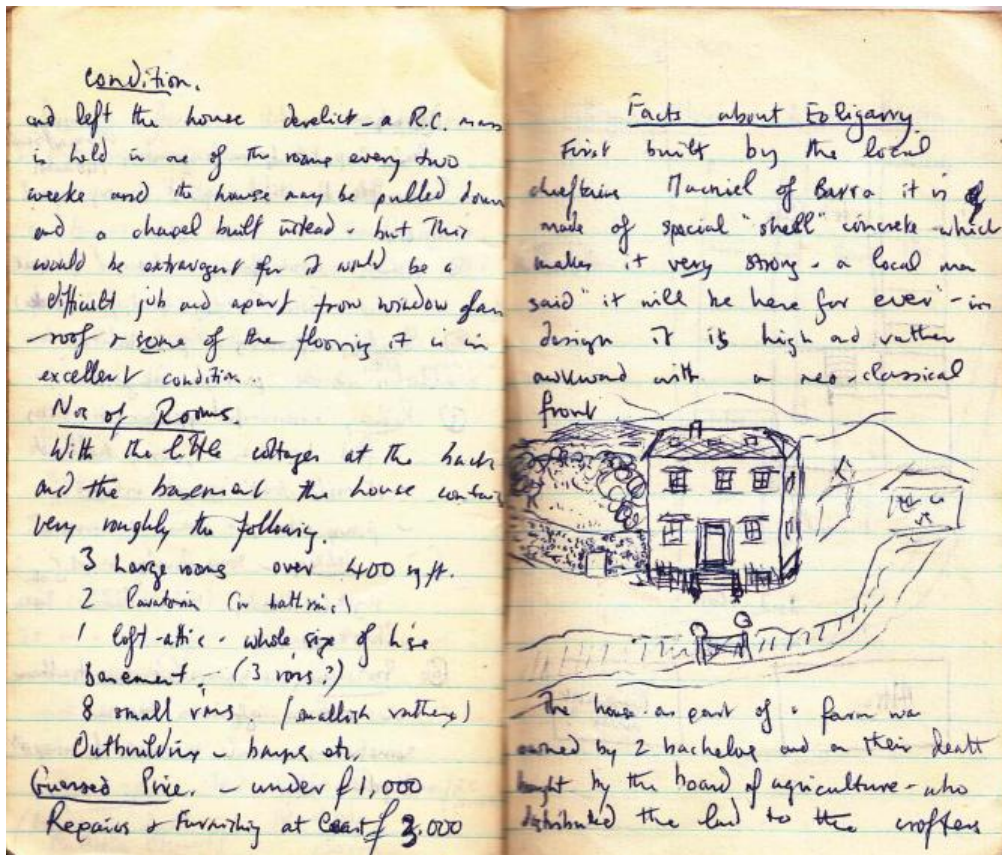 Condition.
and left the house derelict - a R.C. mass
is held in one of the rooms every two
weeks and the house may be pulled down
and a chapel built instead - but this
would be extravagent for it would be a
difficult job and apart from window
roof & some of the flooring it is in
excellent condition.
Nos of Rooms.
With the little cottages at the back
and the basement the house contains
very roughly the following.
3 Large rooms over 400 sq ft.
2 Lavatories (or bathrms)
1 loft-attic - whole size of hse
basement - (3 rms?)
8 small rms. (smallish rather)
Outbuildings - barns etc.
Guessed Price. - under £1,000
Repairs & Furnishing at least £3,000
Facts about Eoligarry
First built by the local
chieftain Macniel of Barra it is
made of special "shell" concrete - which
makes it very strong - a local man
said "it will be here for ever" - in
design it is high and rather
awkward with a neo-classical
front
The house as part of a farm was
owned by 2 bachelors and on their death
bought by the board of agriculture - who
distributed the land to the crofters